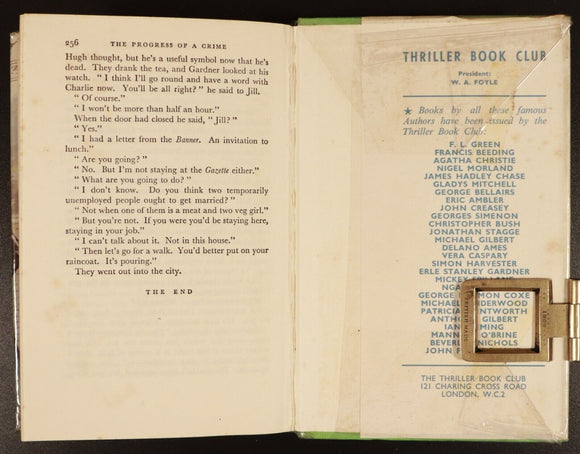 256 THE PROGRESS OF A CRIME
Hugh thought, but he's a useful symbol now that he's
dead. They drank the tea, and Gardner looked at his
watch. “ I think I'll go round and have a word with
Charlie now. You'll be all right? ” he said to Jill.
“ Of course.”
“ I won't be more than half an hour.”
When the door had closed he said, “ Jill? ”
“ Yes.”
“ I had a letter from the Banner. An invitation to
lunch.”
“ Are you going? ”
“ No. But I'm not staying at the Gazette either.”
“ What are you going to do? ”
“ I don't know. Do you think two temporarily
unemployed people ought to get married? ”
“ Not when one of them is a meat and two veg girl.”
“ But you're not. If you were you'd be staying here,
staying in your job.”
“ I can't talk about it. Not in this house.”
“ Then let's go for a walk. You'd better put on your
raincoat. It's pouring.”
They went out into the city.
THE END
THRILLER BOOK CLUB
President:
W. A. FOYLE
★ Books by all these famous
Authors have been issued by the
Thriller Book Club:
F. L. GREEN
FRANCIS BEEDING
AGATHA CHRISTIE
NIGEL MORLAND
JAMES HADLEY CHASE
GLADYS MITCHELL
GEORGE BELLAIRS
ERIC AMBLER
JOHN CREASEY
GEORGES SIMENON
CHRISTOPHER BUSH
JONATHAN STAGGE
MICHAEL GILBERT
DELANO AMES
VERA CASPARY
SIMON HARVESTER
ERLE STANLEY GARDNER
MICKEY
GEORGE MON COXE
MICHAEL DERWOOD
PATRICIA ENTWORTH
ANTHO GILBERT
IAN MING
MANN O'BRINE
BEVERL NICHOLS
JOHN
THE THRILLER BOOK CLUB
121 CHARING CROSS ROAD
LONDON, W.C.2